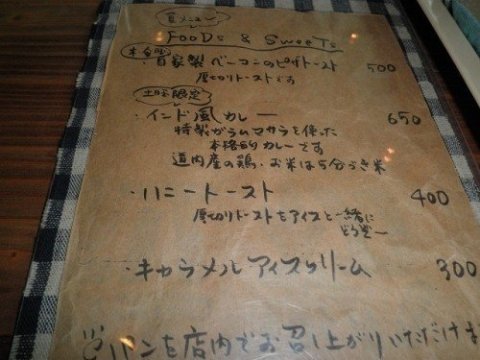 夏メニュー
FOODS & SWEETS
自家製ベーコンのピザトースト 500
厚切りトーストです
土日限定
・インド風カレー 650
特製ガラムマサラを使った
本格的カレーです
道内産の鶏・お米は5分づき米
・ハニートースト 400
厚切りトーストをアイスと一緒に
どうぞー
・キャラメルアイスクリーム 300
パンを店内でお召し上がりいただけま